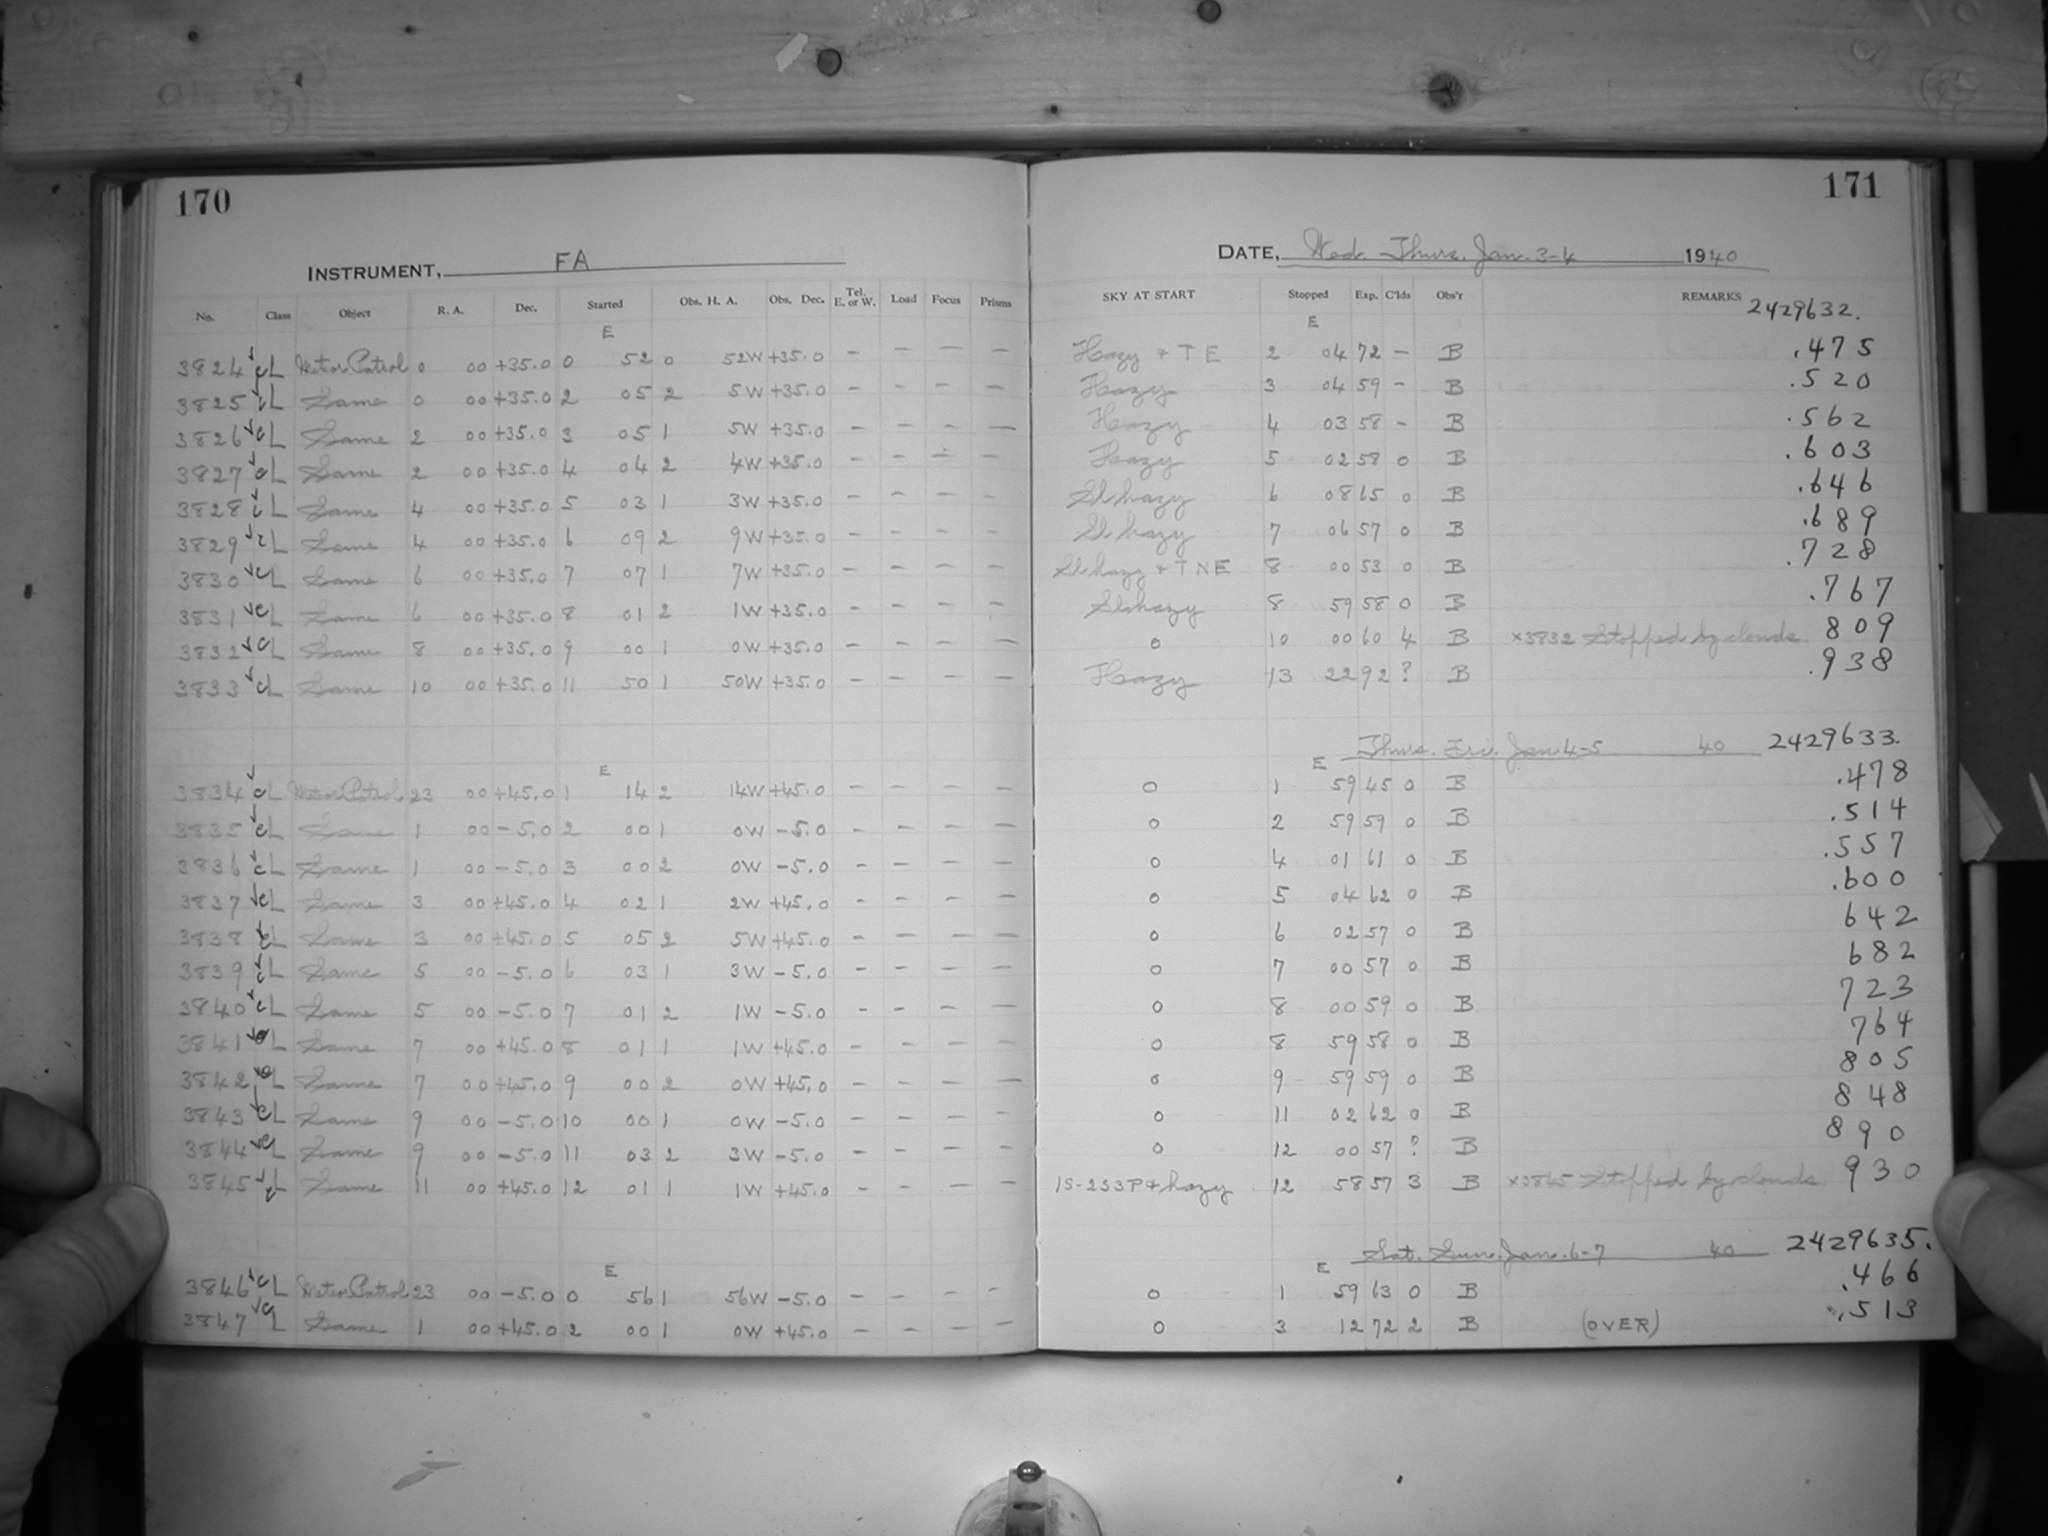 170
171
INSTRUMENT, FA
DATE, Wed. Thurs. Jan. 3-4 1940
No. Class Object R. A. Dec. Started Obs. H. A. Obs. Dec. Tel. E. or W. Load Focus Prisms SKY AT START Stopped Exp. C'lds Obs'r REMARKS 2429632.
E E
3824 cL Meteor Patrol 0 00 +35.0 0 52 0 52W +35.0 - - - - Hazy + T E 2 04 72 - B .475
3825 cL Same 0 00 +35.0 2 05 2 5W +35.0 - - - - Hazy 3 04 59 - B .520
3826 cL Same 2 00 +35.0 3 05 1 5W +35.0 - - - - Hazy 4 03 58 - B .562
3827 cL Same 2 00 +35.0 4 04 2 4W +35.0 - - - - Hazy 5 02 58 0 B .603
3828 cL Same 4 00 +35.0 5 03 1 3W +35.0 - - - - Sl hazy 6 08 65 0 B .646
3829 cL Same 4 00 +35.0 6 09 2 9W +35.0 - - - - Sl hazy 7 06 57 0 B .689
3830 cL Same 6 00 +35.0 7 07 1 7W +35.0 - - - - Sl hazy + T N E 8 00 53 0 B .728
3831 cL Same 6 00 +35.0 8 01 2 1W +35.0 - - - - Sl hazy 8 59 58 0 B .767
3832 cL Same 8 00 +35.0 9 00 1 0W +35.0 - - - - 0 10 00 60 4 B ×3832 Stopped by clouds 809
3833 cL Same 10 00 +35.0 11 50 1 50W +35.0 - - - - Hazy 13 22 92 ? B .938
Thurs. Fri. Jan. 4-5 40 2429633.
E E
3834 cL Meteor Patrol 23 00 +45.0 1 14 2 14W +45.0 - - - - 0 1 59 45 0 B .478
3835 cL Same 1 00 -5.0 2 00 1 0W -5.0 - - - - 0 2 59 59 0 B .514
3836 cL Same 1 00 -5.0 3 00 2 0W -5.0 - - - - 0 4 01 61 0 B .557
3837 cL Same 3 00 +45.0 4 02 1 2W +45.0 - - - - 0 5 04 62 0 B .600
3838 cL Same 3 00 +45.0 5 05 2 5W +45.0 - - - - 0 6 02 57 0 B 642
3839 cL Same 5 00 -5.0 6 03 1 3W -5.0 - - - - 0 7 00 57 0 B 682
3840 cL Same 5 00 -5.0 7 01 2 1W -5.0 - - - - 0 8 00 59 0 B 723
3841 cL Same 7 00 +45.0 8 01 1 1W +45.0 - - - - 0 8 59 58 0 B 764
3842 cL Same 7 00 +45.0 9 00 2 0W +45.0 - - - - 0 9 59 59 0 B 805
3843 cL Same 9 00 -5.0 10 00 1 0W -5.0 - - - - 0 11 02 62 0 B 848
3844 cL Same 9 00 -5.0 11 03 2 3W -5.0 - - - - 0 12 00 57 ? B 890
3845 cL Same 11 00 +45.0 12 01 1 1W +45.0 - - - - 1S-2S3P+hazy 12 58 57 3 B ×3845 Stopped by clouds 930
Sat. Sun. Jan. 6-7 40 2429635.
E E
3846 cL Meteor Patrol 23 00 -5.0 0 56 1 56W -5.0 - - - - 0 1 59 63 0 B .466
3847 cL Same 1 00 +45.0 2 00 1 0W +45.0 - - - - 0 3 12 72 2 B (OVER) .513